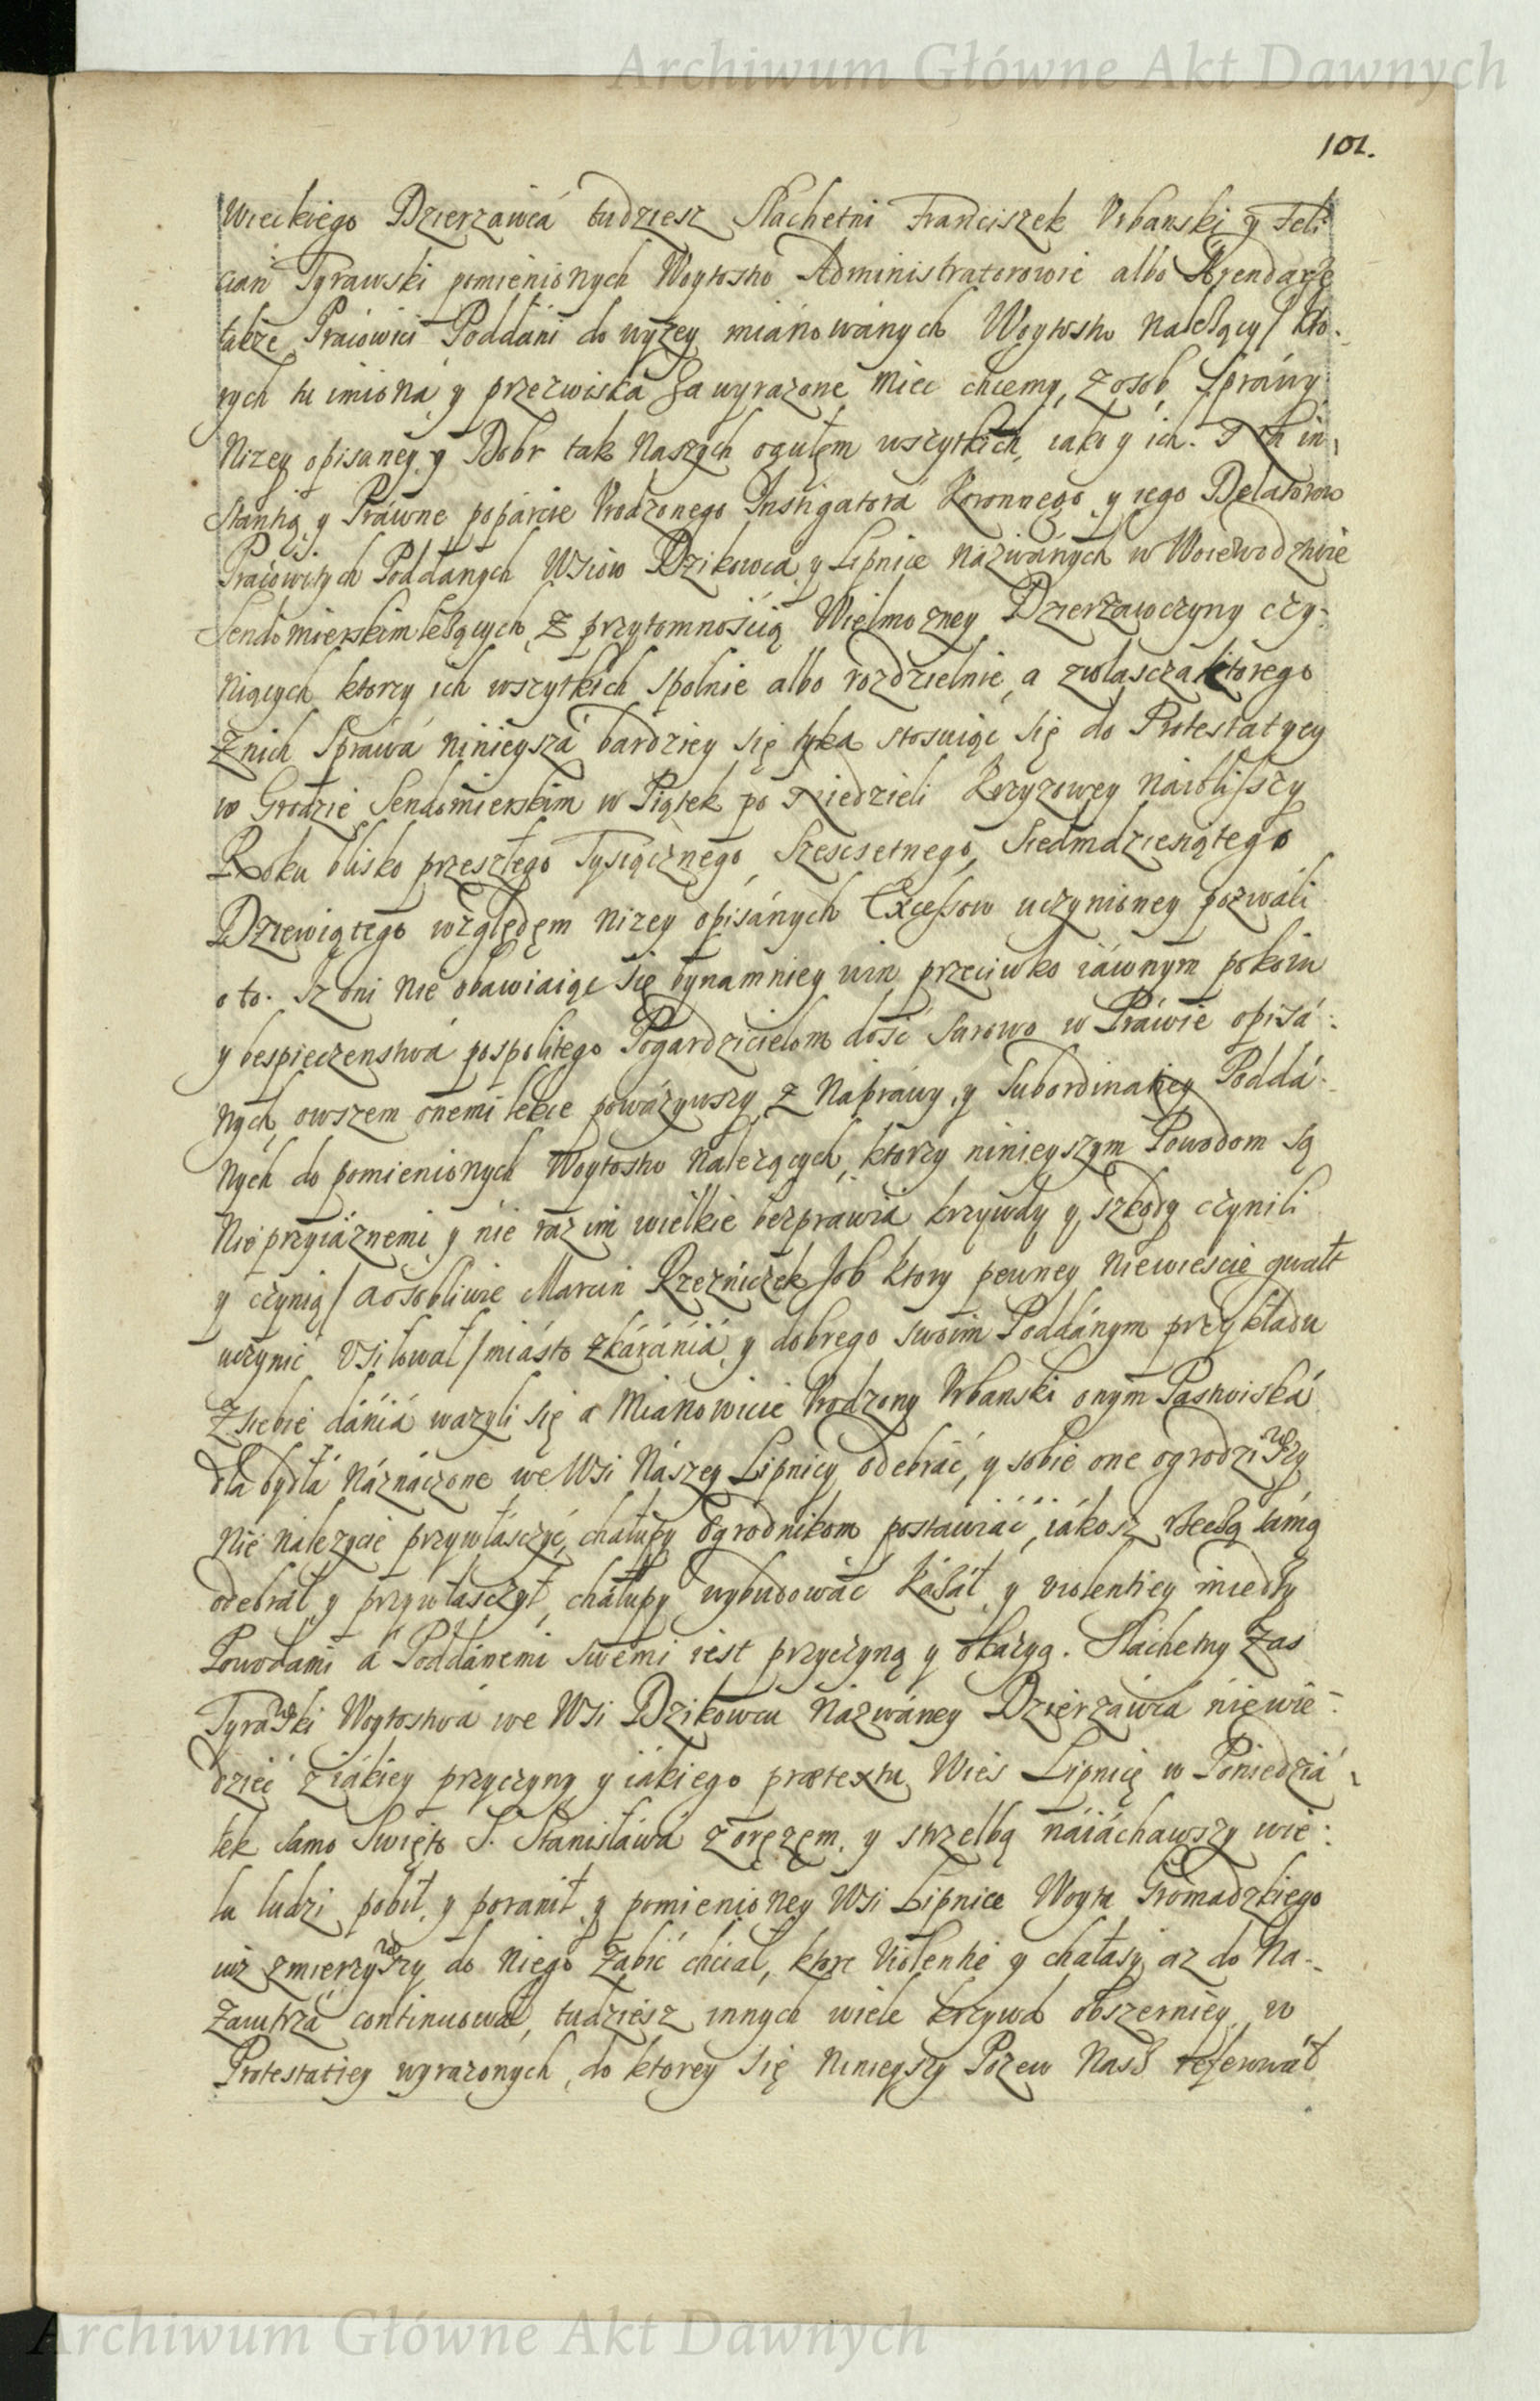 Archiwum Główne Akt Dawnych
101.
wieckiego Dzierzawcá tudziesz Slachetni Franciszek Vrbanski y Feli
cian Tyrawski pomienionych Woytostw Administratorowie albo Arendarze
także Pracowici Poddani do wyzey miánowánych Woytostw należący / kto-
rych tu imioná y przezwiska za wyrazone miec chcemy, z osob, sprawy
nizey opisaney y Dobr tak naszych ogułem wszytkich, iako y ich. Ná in-
stantią y Práwne popárcie Vrodzonego Instigatorá Koronnego y iego Delatorow
Pracowitych Poddanych Wsiow Dzikowca y Lipnice názwánych w Woiewodztwie
Sendomierskim leżących, z przytomnością Wielmozney Dzierzawczyny czy-
niących ktorzy ich wszytkich spolnie albo rozdzielnie, a zwłasczá ktorego
z nich sprawá ninieysza bardziey się tyka stosuiąc się do Protestatycy
w Grodzie Sendomierskim w Piątek po Niedzieli Krzyzowey naiblisszy
Roku blisko przeszłego Tysiącznego, Szescsetnego, Siedmdziesiątego
Dziewiątego względem nizey opisánych Excessow uczynioney pozwáli
o to. Iz oni nie obawiaiąc się bynamniey win przeciwko iáwnym pokoiu
y bespieczenstwá pospolitego Pogardzicielom dość surowo w Práwie opisá-
nych, owszem onemi lekce powázywszy z náprawy, y Subordinatiey Poddá-
nych do pomienionych Woytostw nalezących, ktorzy ninieyszym Powodom są
nieprzyiáznemi y nie raz im wielkie bezprawia krzywdy y szkody czynili
y czynią / a osobliwie Marcin Rzezniczek Job ktory pewney niewiescie gwałt
uczynić vsiłował / miásto zkáránia, y dobrego swoim Poddánym przykładu
z siebie dániá wazyli się a mianowicie Vrodzony Vrbanski onym Pastwiská
dla bydłá náznáczone we Wsi Nászey Lipnicy odebráć, y sobie one ogrodziwszy
nie nalezycie przywłászczyć, chałupy Ogrodnikom postawiáć, iákosz rzeczą sámą
odebrał y przywłasczył, chałupy wybudowáć kazał y violentiey miedzy
Powodami á Poddánemi swemi iest przyczyną y okazyą. Slachetny zas
Tyrawski Woytostwá we Wsi Dzikowcu názwáney Dzierzáwcá niewie-
dzieć z iákiey przyczyny y iákiego prætextu Wieś Lipnicę w Poniedziá-
łek samo Swięto S. Stanisłáwá z orężem, y strzelbą náiáchawszy wie-
lu ludzi pobił, y poranił, y pomienioney Wsi Lipnice Woyta Gromadzkiego
iuz zmierzywszy do niego zabić chciał, ktore violentie y chałasy az do na-
zaiutrzá continuował, tudziesz innych wiele krzywd obszerniey w
Protestatiey wyrazonych, do ktorey się ninieyszy Pozew Nasz referował
Archiwum Główne Akt Dawnych